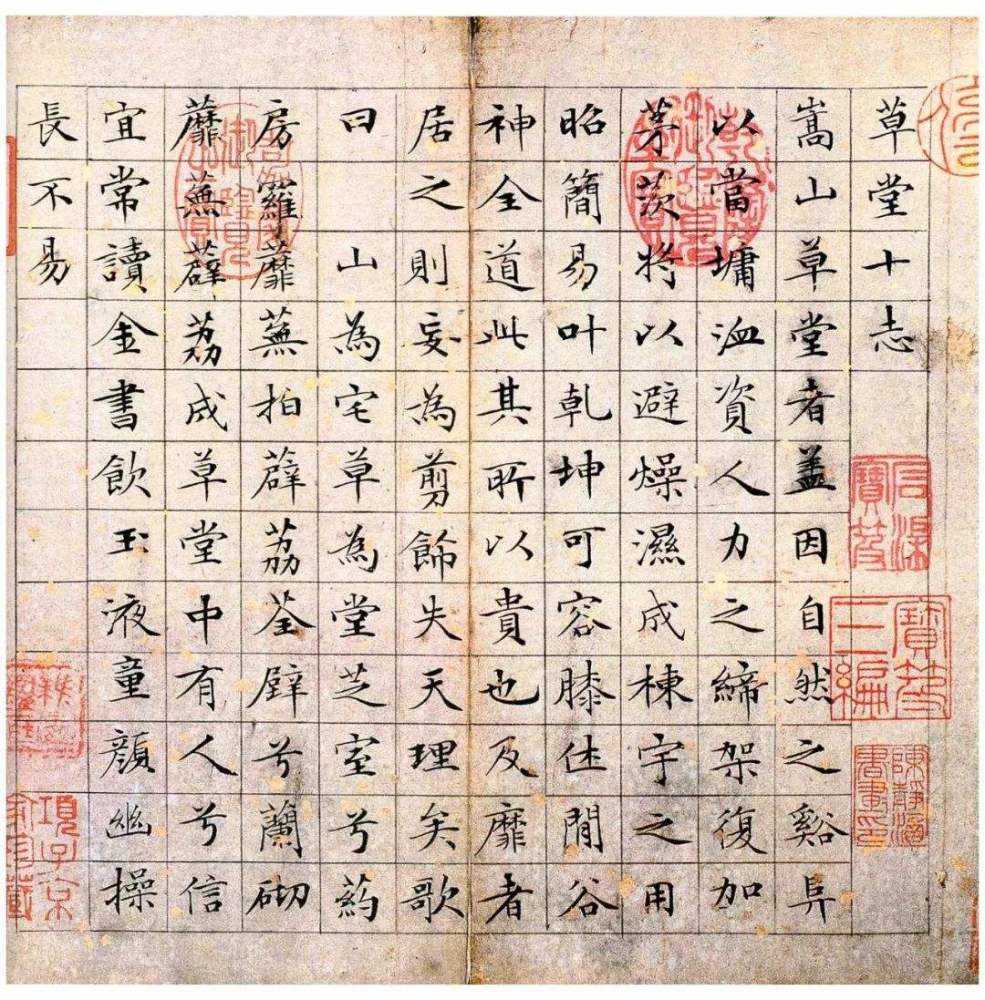 草堂十志
嵩山草堂者盖因自然之谿阜
以當墉洫資人力之締架復加
茅茨将以避燥濕成棟宇之用
昭簡易叶乹坤可容膝休閒谷
神全道此其所以貴也及靡者
居之則妄為剪餙失天理矣歌
曰 山為宅草為堂芝室兮葯
房羅蘼蕪拍薜荔荃壁兮蘭砌
蘼蕪薜荔成草堂中有人兮信
宜常讀金書飲玉液童顔幽操
長不易
乾隆御覽之寶
石渠寶笈
寶笈三編
項子京家珍藏